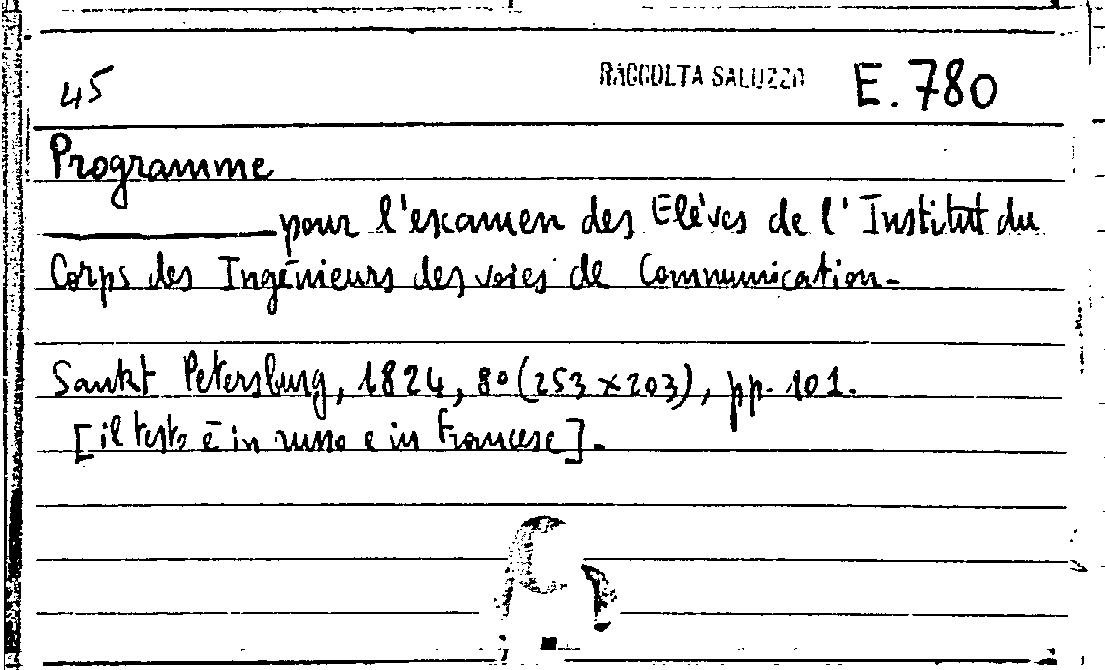 45 RACCOLTA SALUZZO E.780
Programme
pour l'examen des Elèves de l'Institut du
Corps des Ingénieurs des voies de Communication.
Sankt Petersburg, 1824, 8° (253 x 203), pp. 101.
[il testo è in russo e in francese].